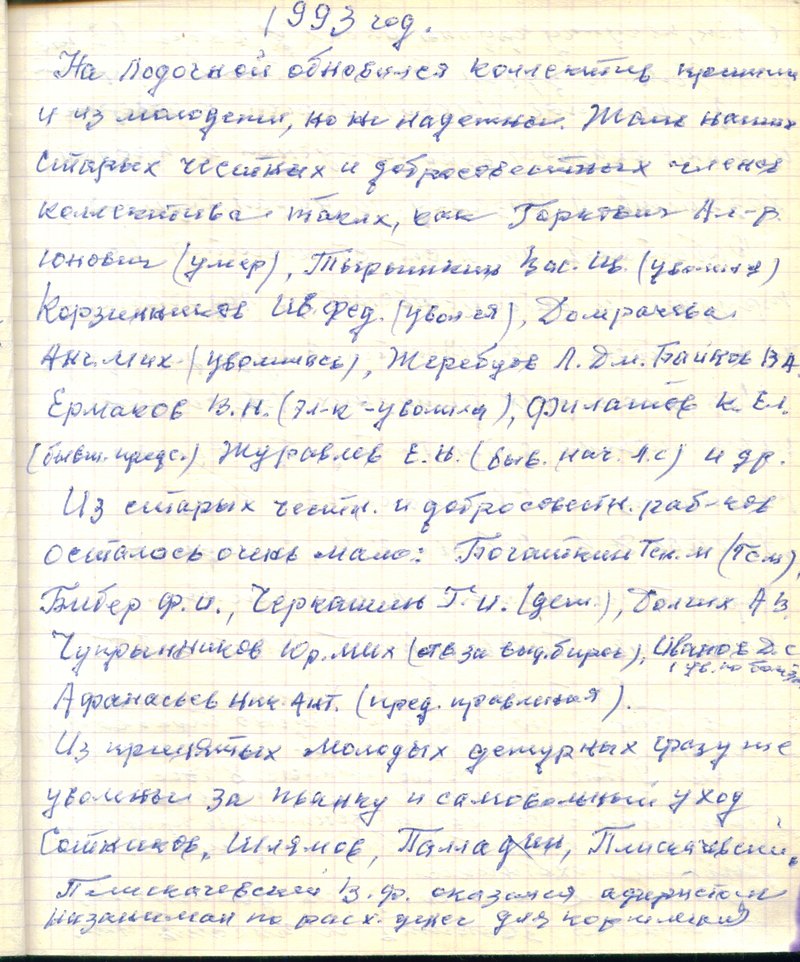 1993 год.
На Лодочной обновился коллектив пришли
и из молодежи, но не надежные. Жаль наших
старых честных и добросовестных членов
коллектива таких, как Ал-р
(умер), Тырышкин Вас. (уволился)
Корзинников Ив. Фед. (увол-ся), Домрачева
Анг. Мих. (уволилась), Жеребцов Л. Дм. Байнов В А.
Ермаков В. Н. (эл-к - уволился), Филатов К. Ел.
(бывш. предс.) Журавлев Е. Н. (быв. нач. л.с) и др.
Из старых честн. и добросовестн. раб-ков
осталось очень мало: Богаткин
Бибер Ф. И., Черкашин Г. И. (деж.), Долгих А В.
Чупрынников Юр. Мих (отв за выд. бирок), Иванов Д. С
Афанасьев Ник. Ант. (пред. правления).
Из принятых молодых дежурных сразу же
уволены за пьянку и самовольный уход
Сотников, Шлямов, Палладин, Плискачевский.
Плискачевский В. Ф. оказался аферистом
назанимал по расх. денег для кормления